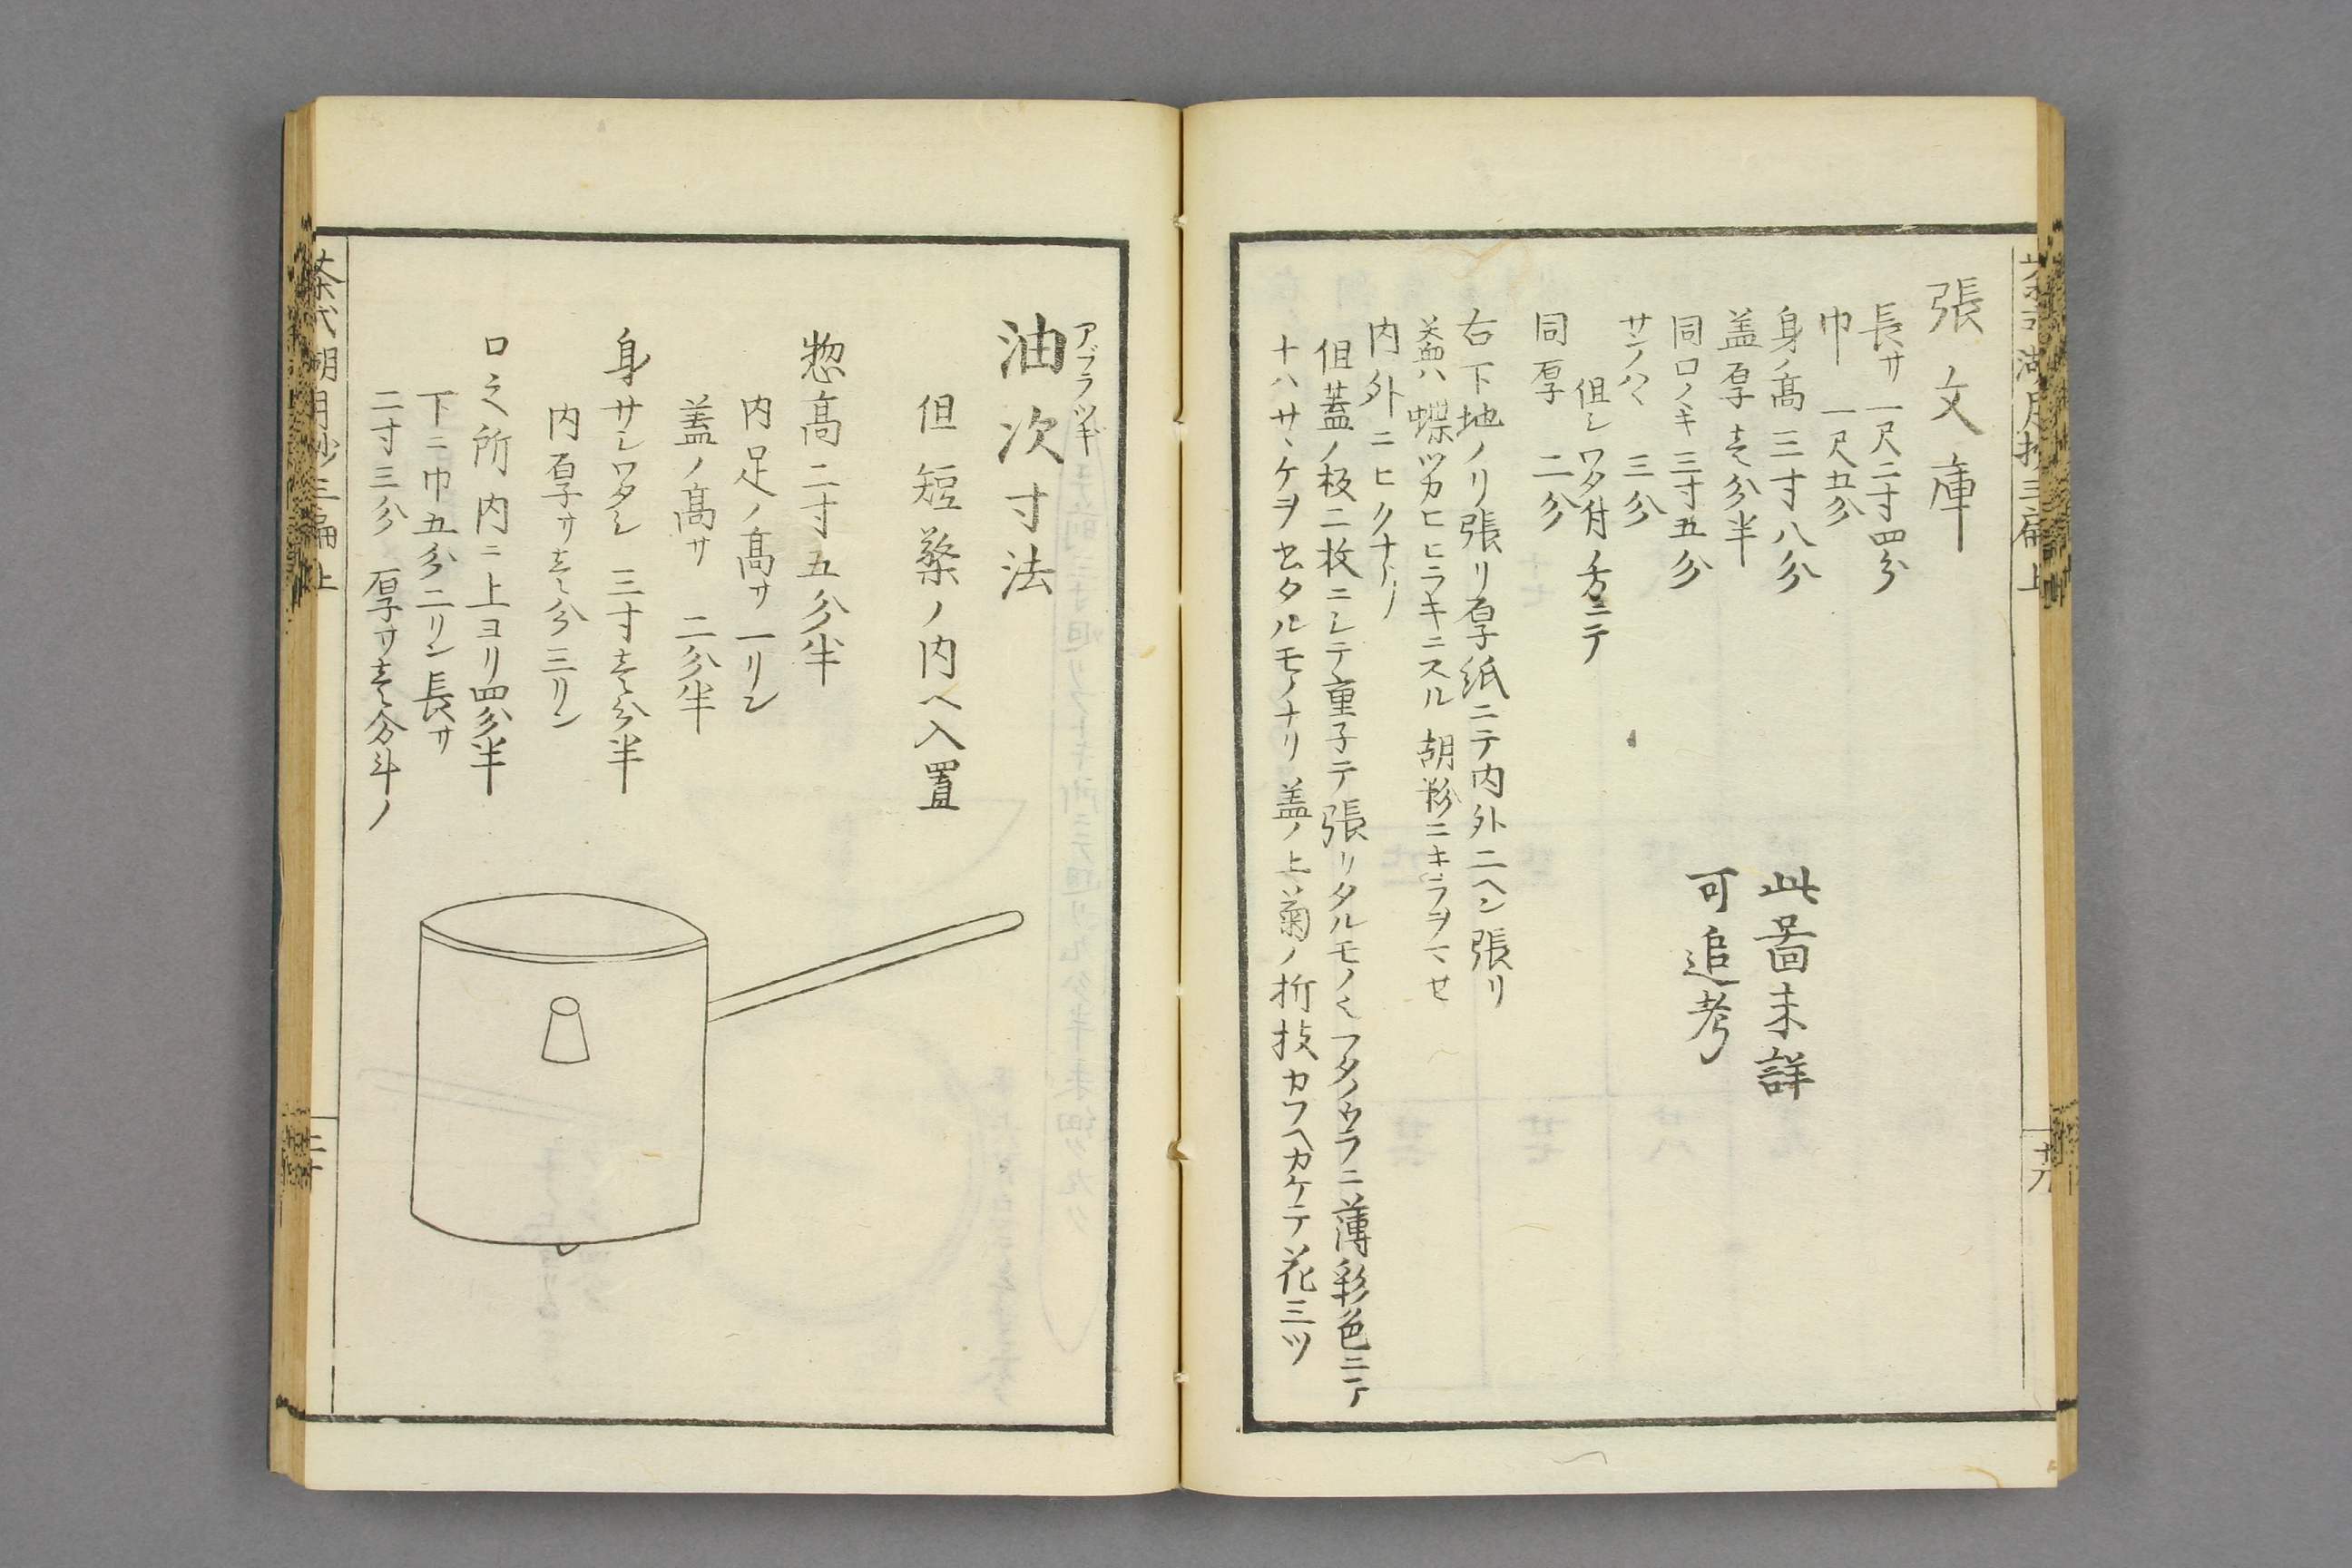 張文庫
長サ 一尺二寸四分
巾 一尺五分
身ノ髙 三寸八分
盖厚 壱分半
同口ノキ 三寸五分
サンノハヾ 三分
但シワタ付ノ方ニテ
同厚 二分
此啚未詳
可追考
右下地ノリ張リ厚紙ニテ内外二ヘン張リ
盖ハ蝶ツカヒヒラキニスル 胡粉ニキラヲマせ
内外ニヒクナリ
但蓋ノ板二枚ニシテ童子テ張リタルモノ フタノウラニ薄彩色ニテ
十ハサヽケヲセタルモノナリ 盖ノ上菊ノ折技カフヘカケテ花三ツ
茶式湖月抄三扁上
十九
アブラツギ
油次寸法
但短檠ノ内ヘ入置
惣髙二寸五分半
内足ノ髙サ一リン
盖ノ髙サ 二分半
身サシワタシ 三寸壱分半
内厚サ壱分三リン
口之所内ニ上ヨリ四分半
下ニ巾五分二リン長サ
二寸三分 厚サ壱分斗ノ
茶式湖月抄三編上
二十